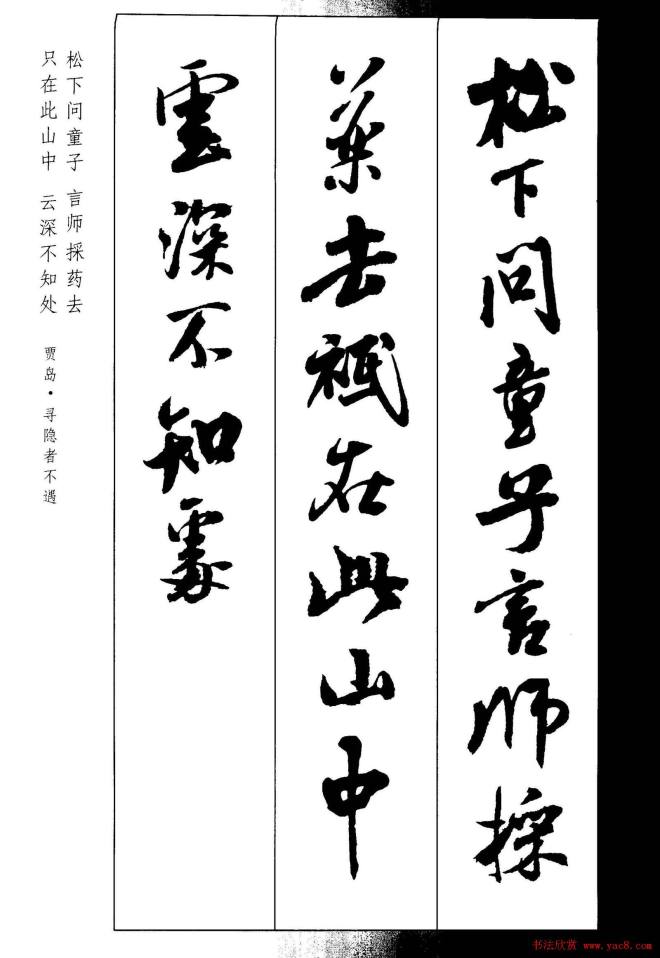 松下问童子言师採
药去祇在此山中
雲深不知处
松下问童子 言师採药去
只在此山中 云深不知处
贾岛·寻隐者不遇
书法欣赏 www.yac8.com